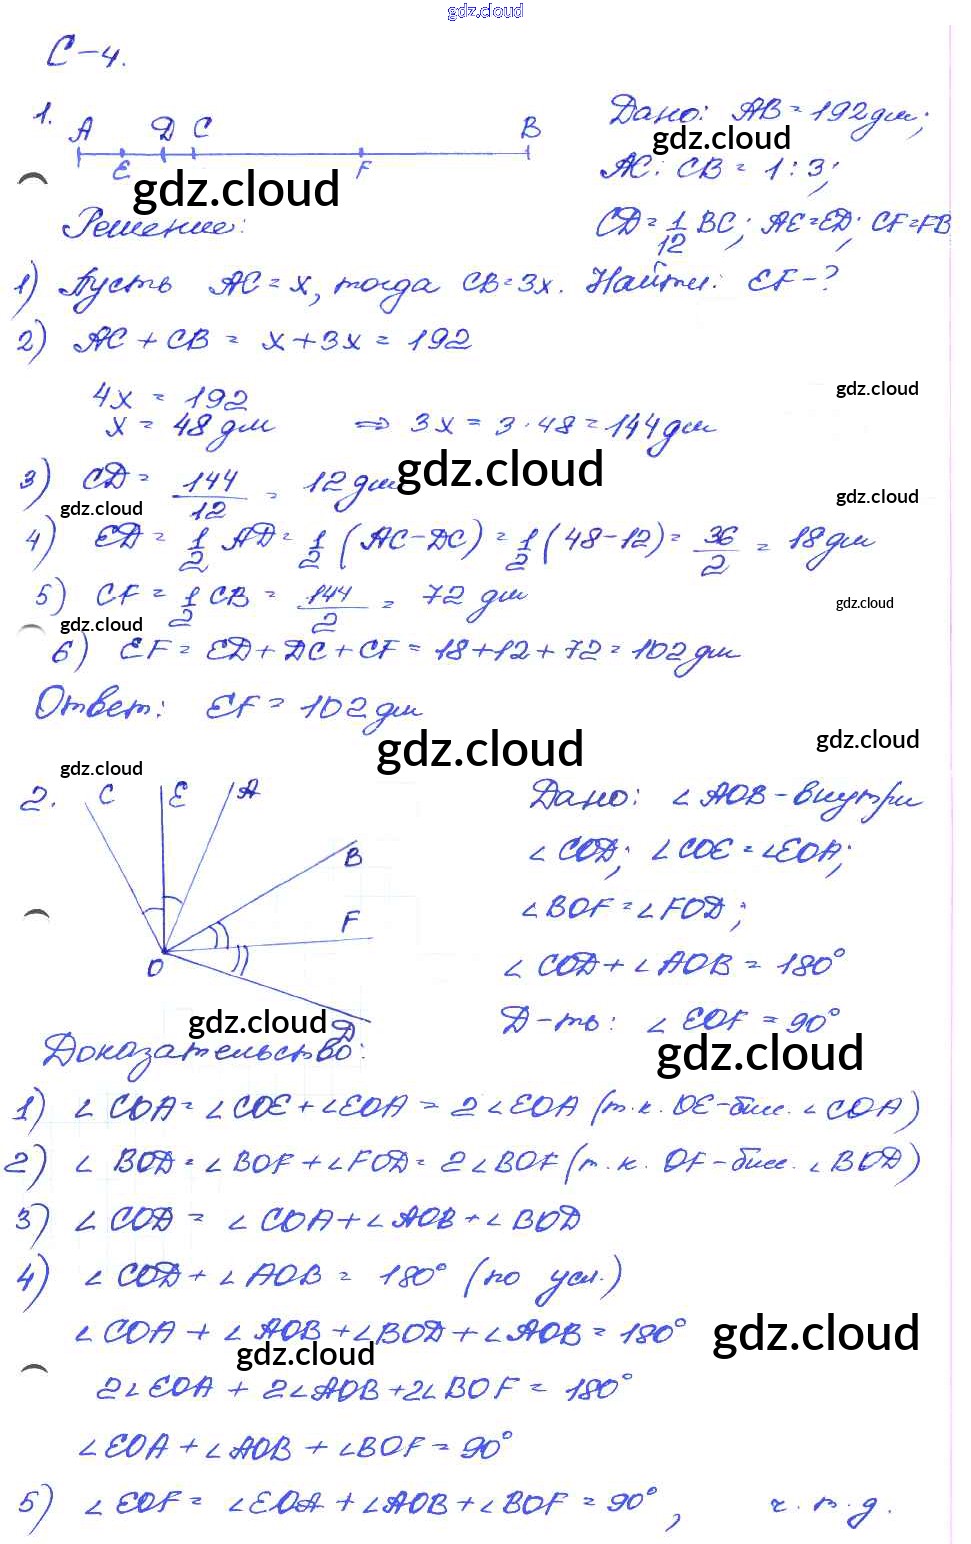 gdz.cloud
С-4.
1. A E D C F B
Дано: AB = 192 дм;
gdz.cloud
AC : CB = 1 : 3;
gdz.cloud
CD = 1/12 BC; AE = ED; CF = FB
Решение:
Найти: EF - ?
1) Пусть AC = x, тогда CB = 3x.
2) AC + CB = x + 3x = 192
gdz.cloud
4x = 192
x = 48 дм ⇒ 3x = 3 · 48 = 144 дм
gdz.cloud
3) CD = 144/12 = 12 дм
gdz.cloud
gdz.cloud
4) ED = 1/2 AD = 1/2 (AC - DC) = 1/2 (48 - 12) = 36/2 = 18 дм
5) CF = 1/2 CB = 144/2 = 72 дм
gdz.cloud
gdz.cloud
6) EF = ED + DC + CF = 18 + 12 + 72 = 102 дм
Ответ: EF = 102 дм
gdz.cloud
gdz.cloud
gdz.cloud
2. C E A B F D O
Дано: ∠AOB - внутри
∠COD; ∠COE = ∠EOA;
∠BOF = ∠FOD;
∠COD + ∠AOB = 180°
Д-ть: ∠EOF = 90°
gdz.cloud
gdz.cloud
Доказательство:
1) ∠COA = ∠COE + ∠EOA = 2∠EOA (т.к. OE - бис. ∠COA)
2) ∠BOD = ∠BOF + ∠FOD = 2∠BOF (т.к. OF - бисс. ∠BOD)
3) ∠COD = ∠COA + ∠AOB + ∠BOD
4) ∠COD + ∠AOB = 180° (по усл.)
∠COA + ∠AOB + ∠BOD + ∠AOB = 180°
gdz.cloud
gdz.cloud
2∠EOA + 2∠AOB + 2∠BOF = 180°
∠EOA + ∠AOB + ∠BOF = 90°
5) ∠EOF = ∠EOA + ∠AOB + ∠BOF = 90°, ч.т.д.